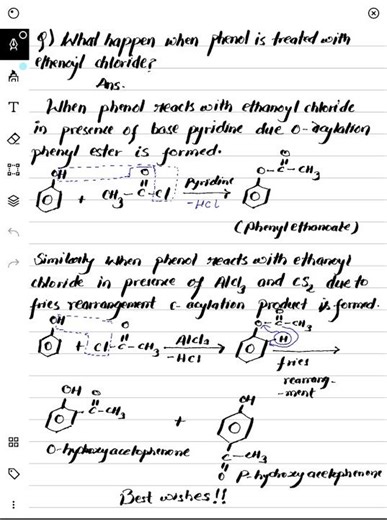 Q) What happen when phenol is treated with
ethenoyl chloride?
Ans.
When phenol reacts with ethanoyl chloride
in presence of base pyridine due O-acylation
phenyl ester is formed.
OH O O
O-C-CH3
+ CH3-C-Cl Pyridine
-HCl
(Phenyl ethanoate)
Similarly when phenol reacts with ethanoyl
chloride in presence of AlCl3 and CS2 due to
fries rearrangement C-acylation product is formed.
OH O O
O-C-CH3
+ Cl-C-CH3 AlCl3 H
-HCl fries
rearrang-
-ment
OH O OH
C-CH3 +
O-hydroxyacetophenone
C-CH3
O P-hydroxy acetophenone
Best wishes!!
T